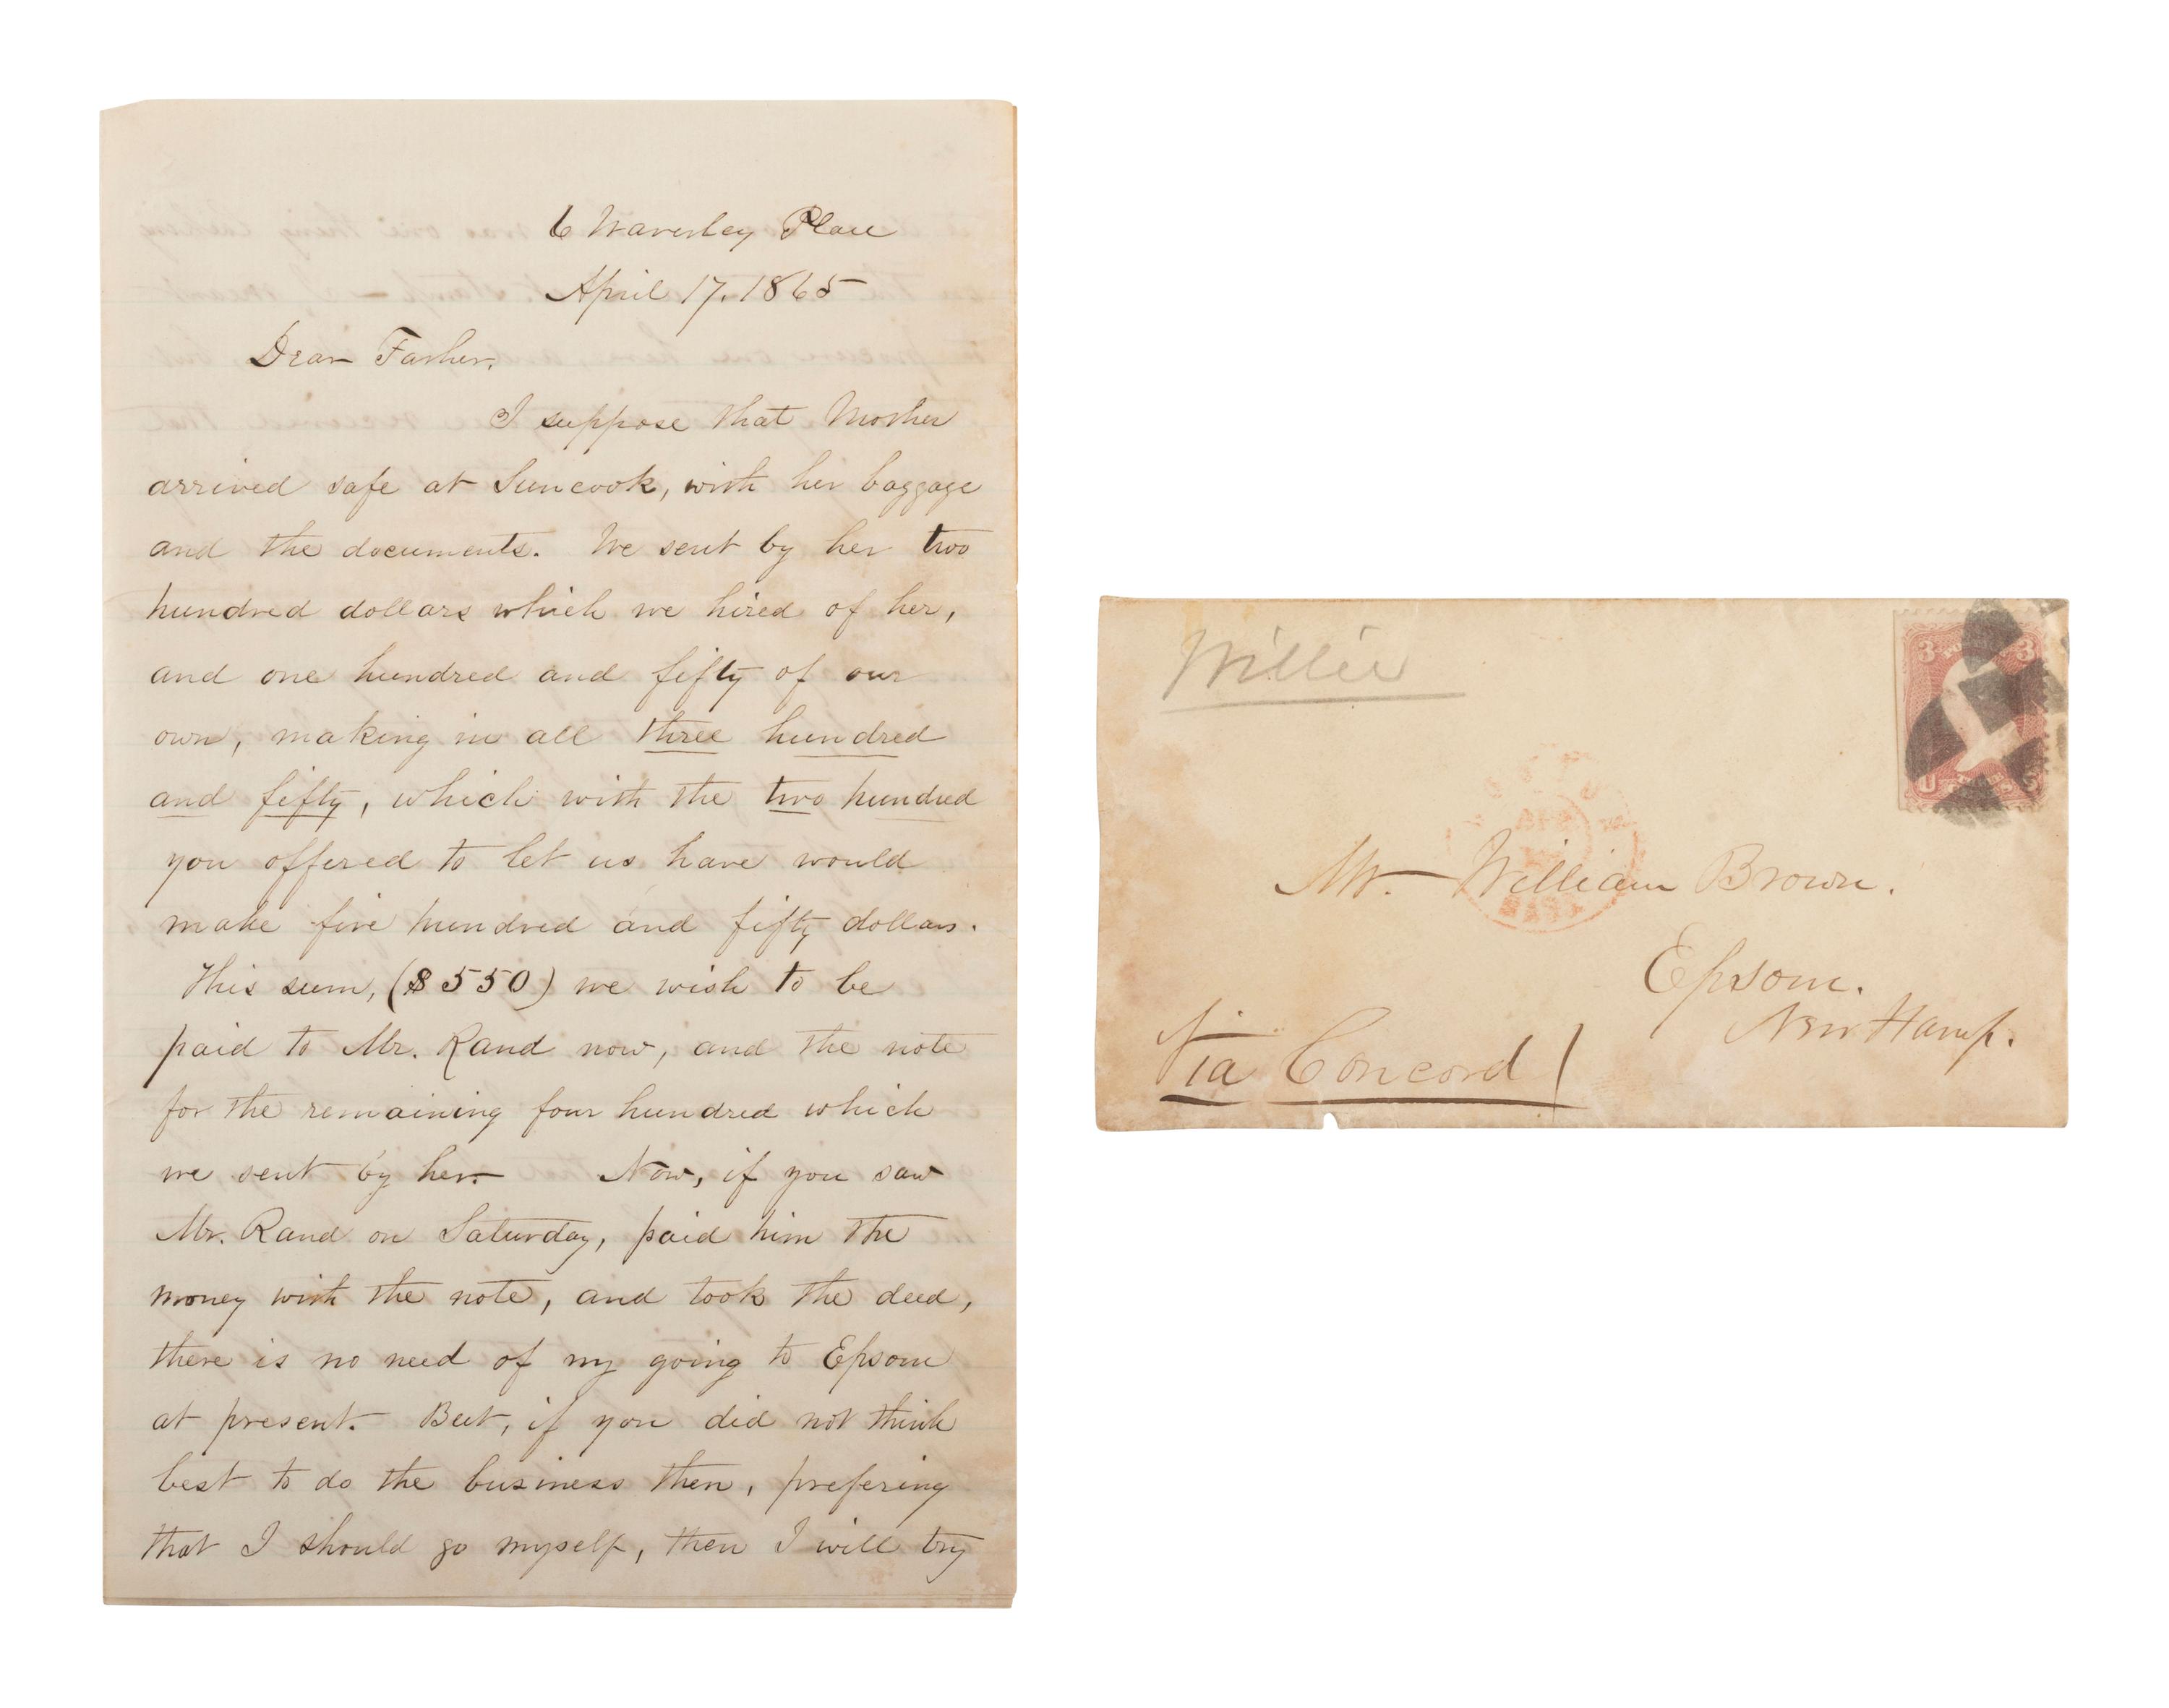 6 Waverley Place
April 17. 1865
Dear Father,
I suppose that Mother
arrived safe at Suncook, with her baggage
and the documents. We sent by her two
hundred dollars which we hired of her,
and one hundred and fifty of our
own, making in all three hundred
and fifty, which with the two hundred
you offered to let us have would
make five hundred and fifty dollars.
This sum, ($550) we wish to be
paid to Mr. Rand now, and the note
for the remaining four hundred which
we sent by her. Now, if you saw
Mr. Rand on Saturday, paid him the
money with the note, and took the deed,
there is no need of my going to Epsom
at present. But, if you did not think
best to do the business then, prefering
that I should go myself, then I will try
Willie
3 3
U
Mr. William Brown.
MASS
Epsom.
New Hamp.
Via Concord